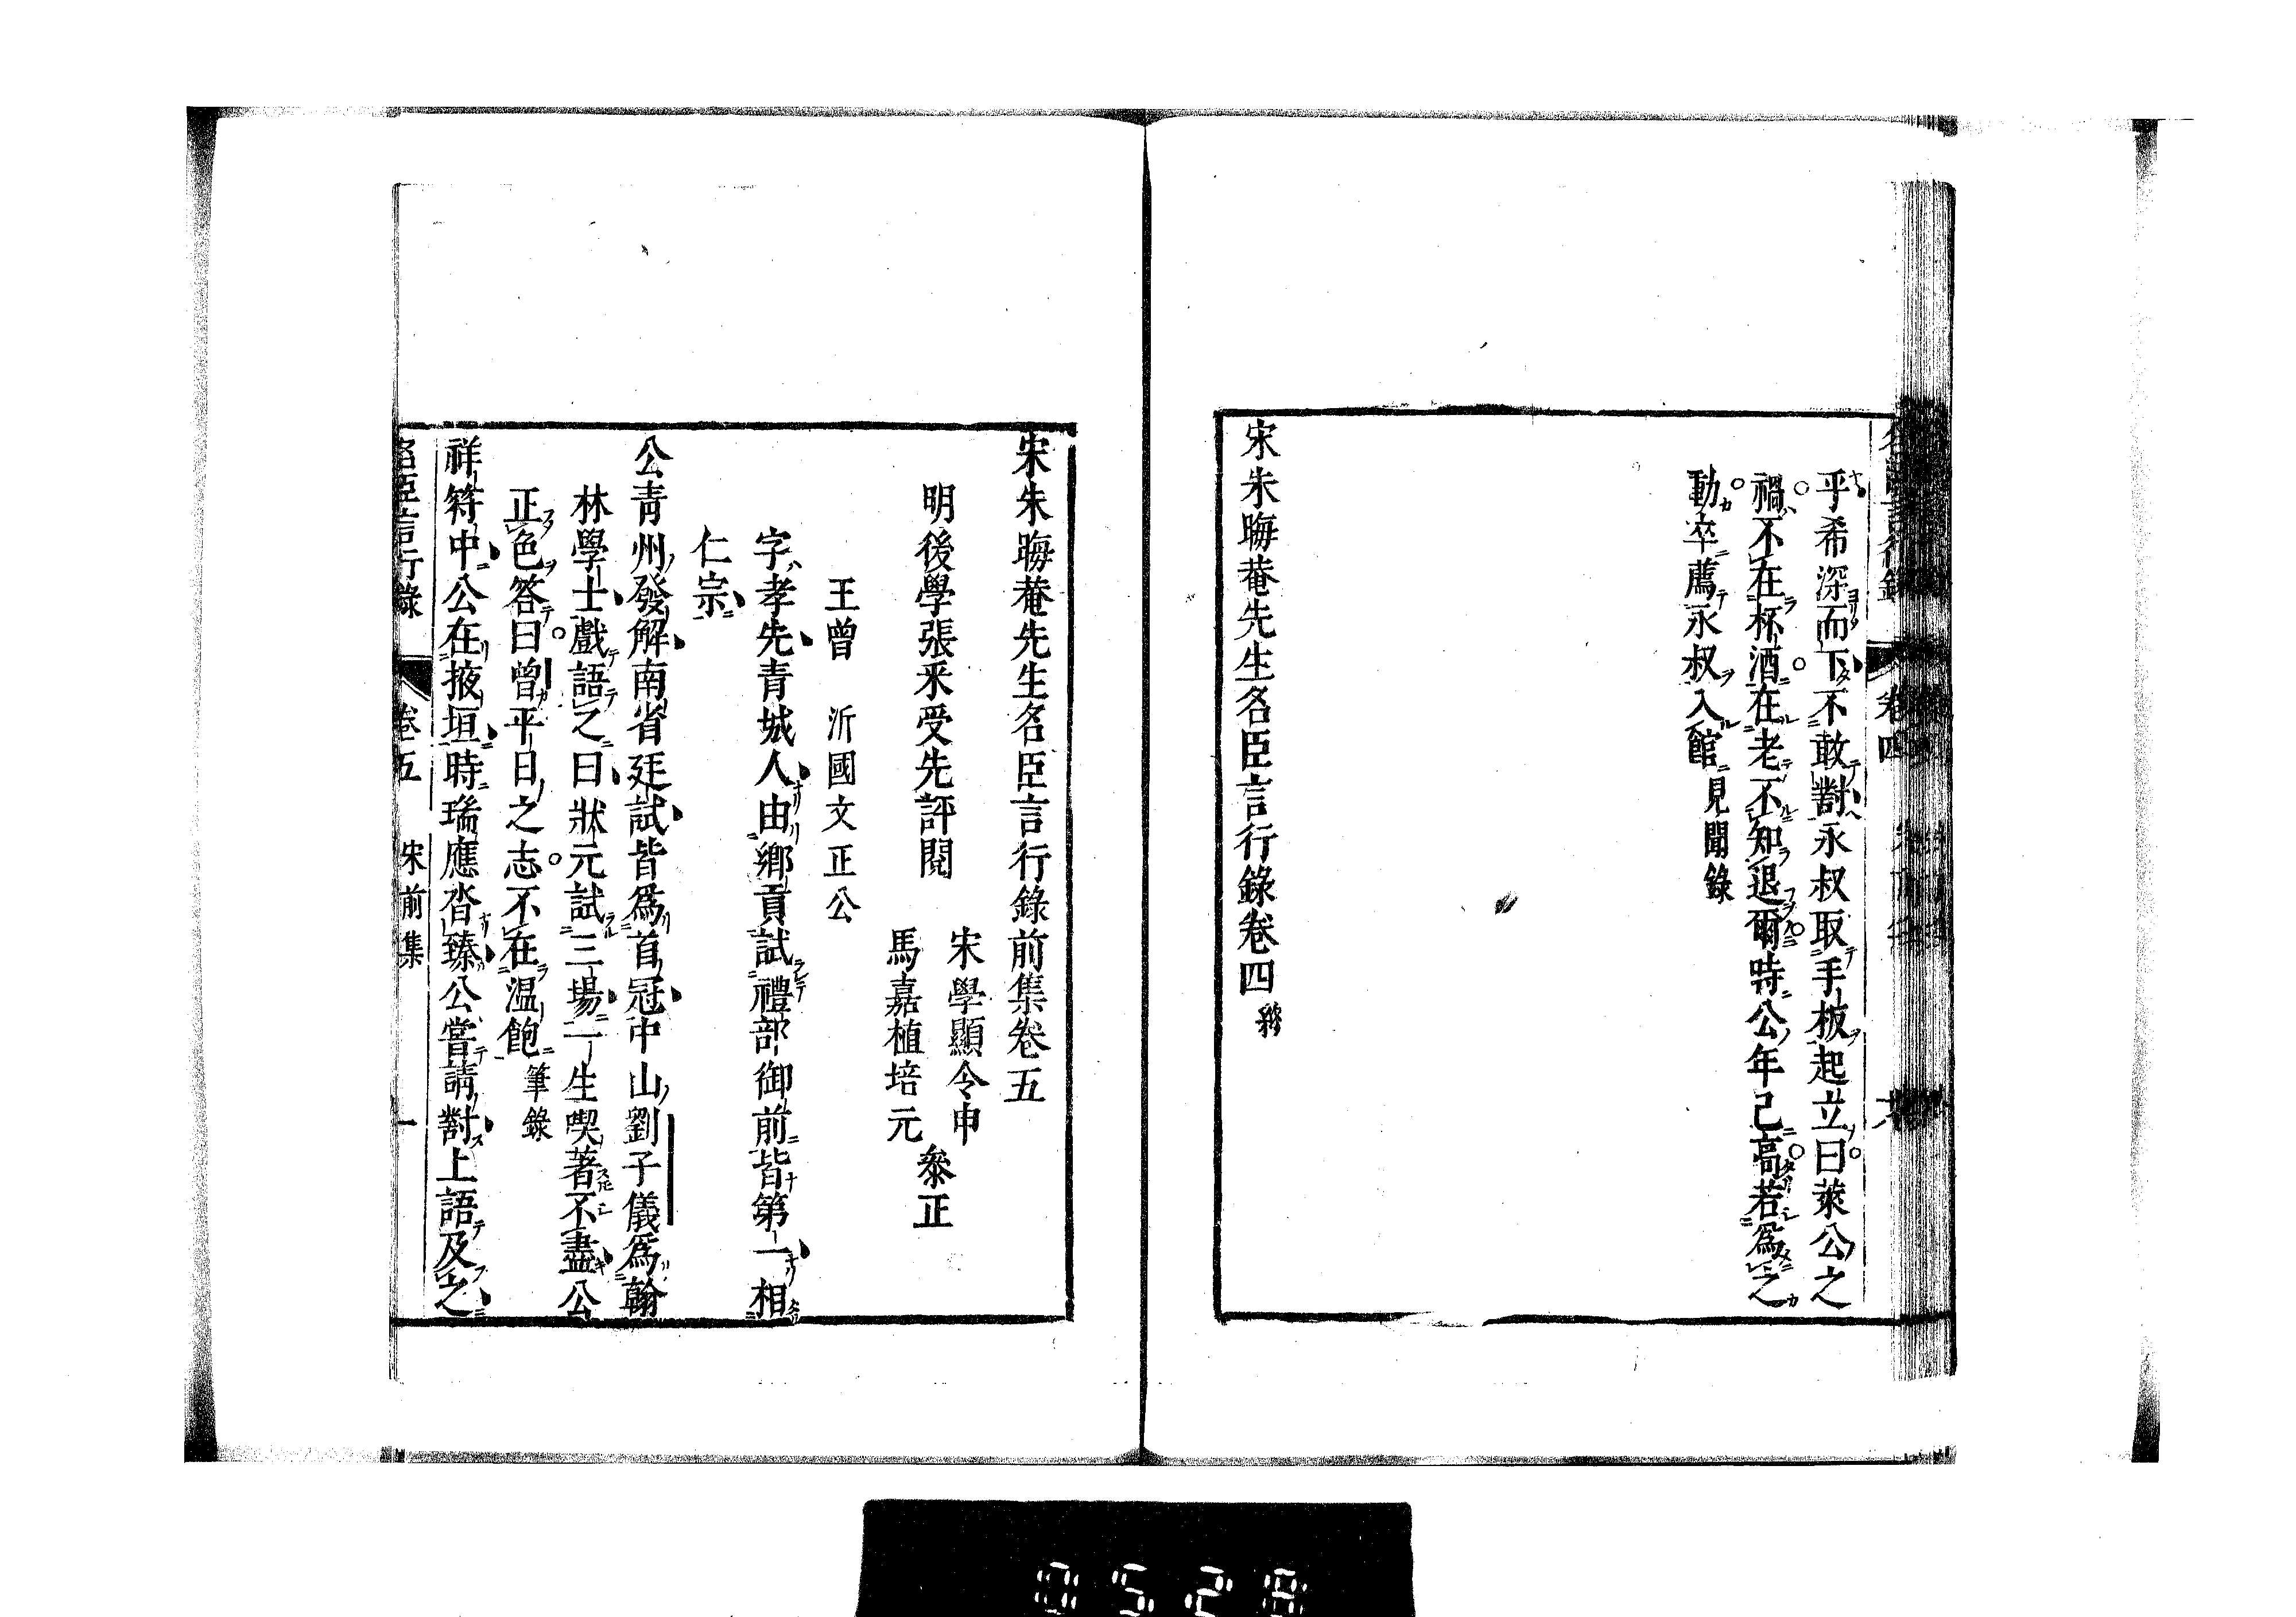 乎希深而下不敢對永叔取手板起立曰萊公之
禍不在杯酒在老不知退爾時公年已高若爲之
動卒薦永叔入館見聞錄
宋朱晦菴先生名臣言行錄卷四終
宋朱晦菴先生名臣言行錄前集卷五
明後學張采受先評閱
宋學顯令申
馬嘉植培元
參正
王曾 沂國文正公
字孝先青城人由鄉貢試禮部御前皆第一相
仁宗
公青州發解南省廷試皆爲首冠中山劉子儀爲翰
林學士戲語之曰狀元試三場一生喫著不盡公
正色答曰曾平日之志不在温飽筆錄
祥符中公在掖垣時瑞應沓臻公嘗請對上語及之
名臣言行錄 卷五 宋前集 一
0528